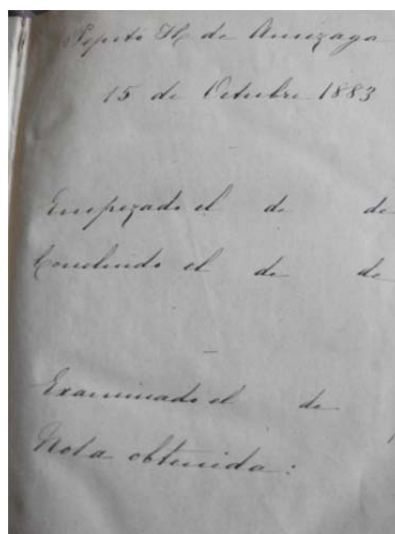 Pepito H. de Amezaga
15 de Octubre 1883
Empezado el de de
Concluido el de de
Examinado el de
Nota obtenida: